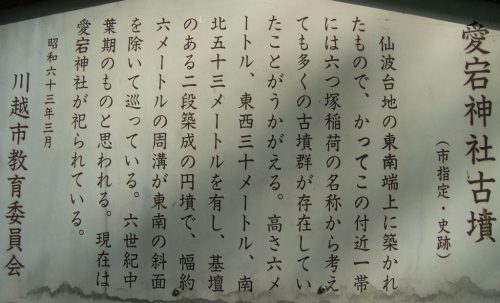 愛宕神社古墳
（市指定・史跡）
仙波台地の東南端上に築かれ
たもので、かつてこの付近一帯
には六つ塚稲荷の名称から考え
ても多くの古墳群が存在してい
たことがうかがえる。高さ六メ
ートル、東西三十メートル、南
北五十三メートルを有し、基壇
のある二段築成の円墳で、幅約
六メートルの周溝が東南の斜面
を除いて巡っている。六世紀中
葉期のものと思われる。現在は
愛宕神社が祀られている。
昭和六十三年三月
川越市教育委員会